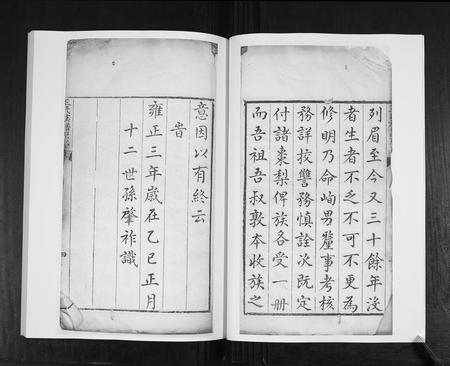 列眉至今又三十餘年沒
者生者不乏不可不更為
修明乃命峋男釐事考核
務詳挍讐務慎詮次既定
付諸棗梨俾族各受一册
而吾祖吾叔敦本收族之
意因以有終云
旹
雍正三年歲在乙巳正月
十二世孫肇祚識